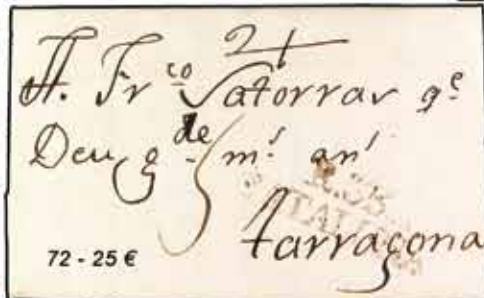 A. Fr.co Satorras q.e
Deu g.de m.s an.s
Tarragona
72 - 25 €